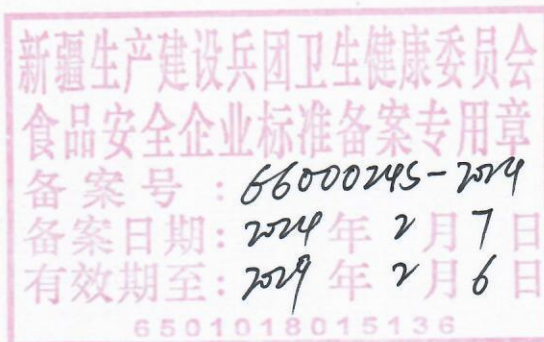 新疆生产建设兵团卫生健康委员会
食品安全企业标准备案专用章
备案号：66000024S-2024
备案日期：2024年2月7日
有效期至：2029年2月6日
6501018015136